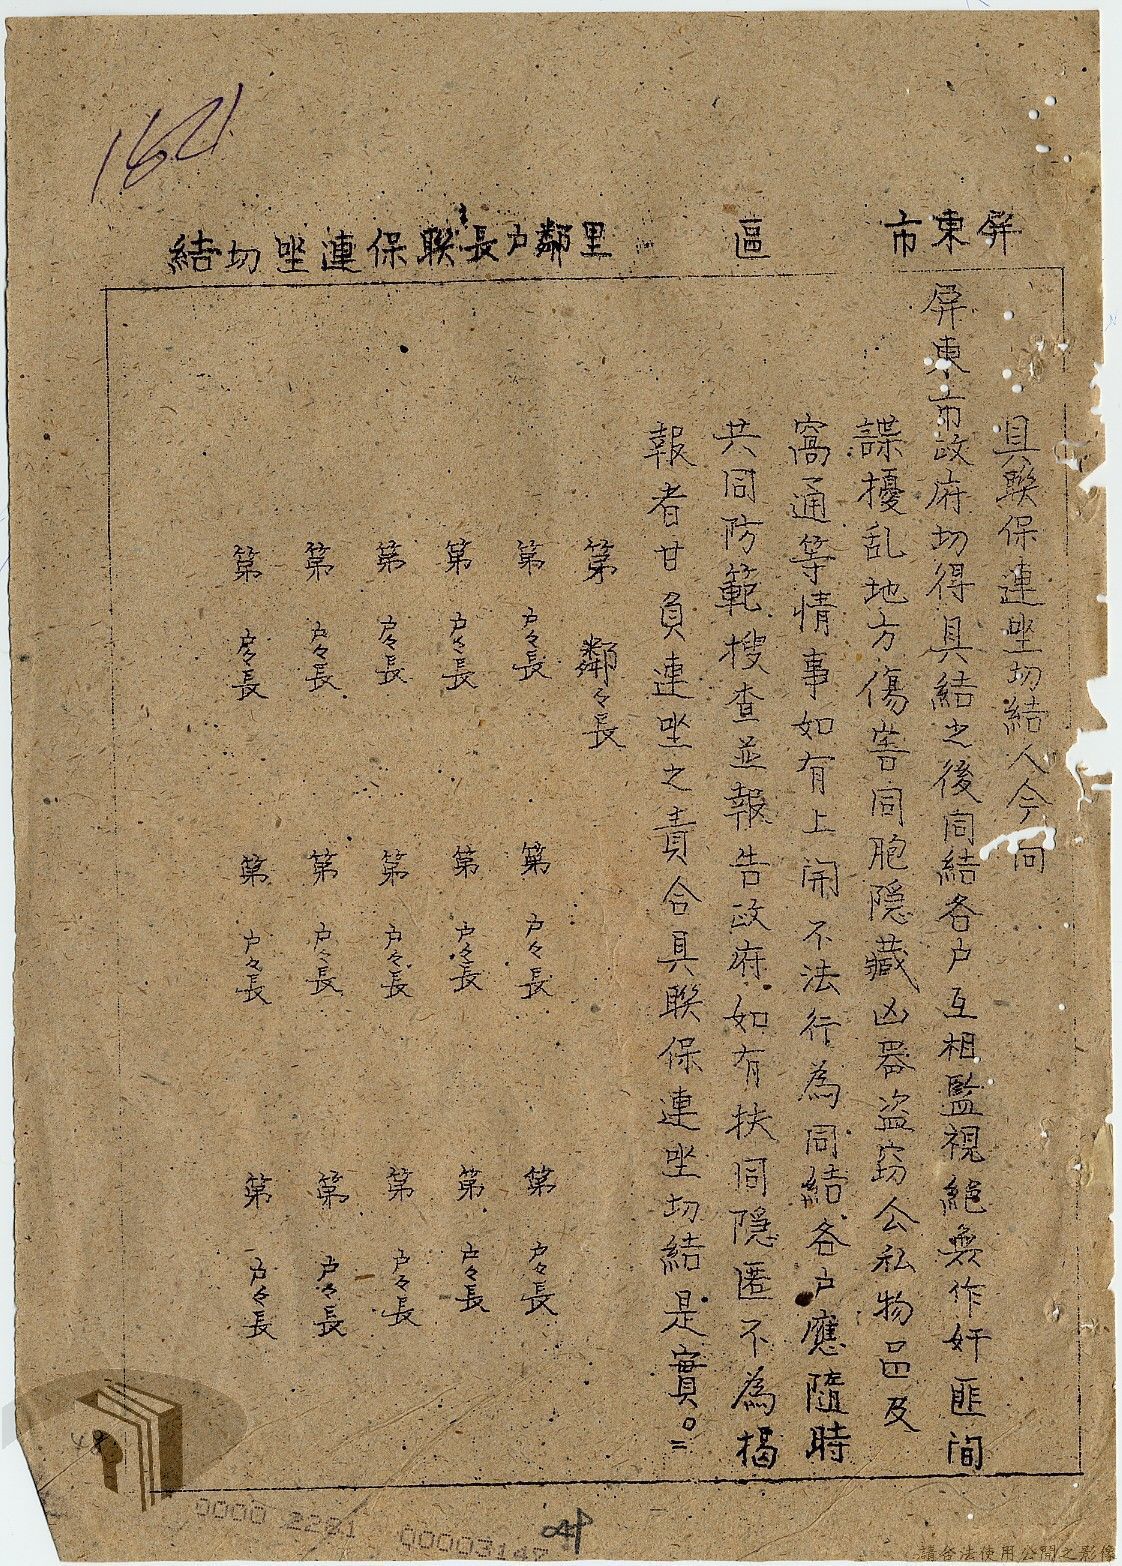 1621
屏東市　　區　　里鄰戶長聯保連坐切結
具聯保連坐切結人今向
屏東市政府切得具結之後同結各户互相監視絕無作奸匪间
諜擾乱地方傷害同胞隐藏凶器盗窃公私物品及
窩通等情事如有上開不法行為同結各户應隨時
共同防範搜查並報告政府如有扶同隱匿不為揭
報者甘負連坐之責合具聯保連坐切結是實。
第　鄰々長
第　户々長　第　户々長　第　户々長
第　户々長　第　户々長　第　户々長
第　户々長　第　户々長　第　户々長
第　户々長　第　户々長　第　户々長
第　户々長　第　户々長　第　户々長
0000 2281
00003147
請合法使用公開之影像